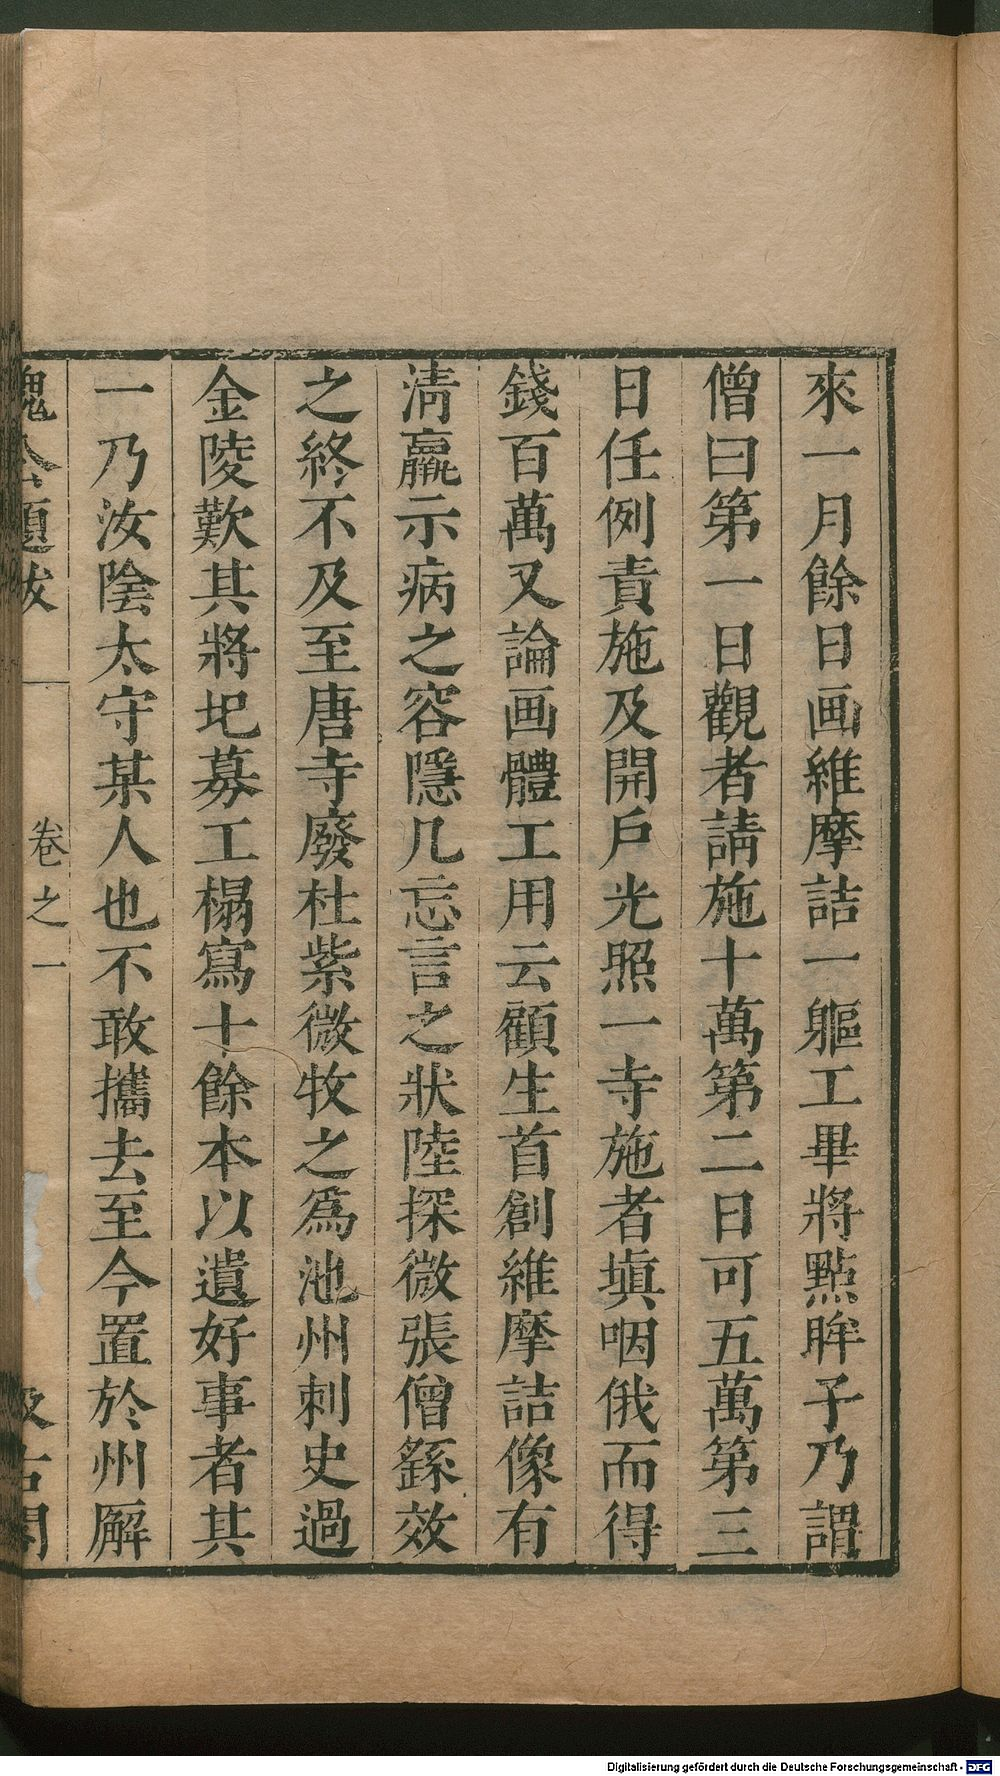 來一月餘日画維摩詰一軀工畢將點眸子乃謂
僧曰第一日觀者請施十萬第二日可五萬第三
日任例責施及開戶光照一寺施者填咽俄而得
錢百萬又論画體工用云顧生首創維摩詰像有
淸羸示病之容隱几忘言之狀陸探微張僧繇效
之終不及至唐寺廢杜紫微牧之爲池州刺史過
金陵歎其將圯募工榻寫十餘本以遺好事者其
一乃汝陰太守某人也不敢攜去至今置於州廨
魏公題跋 卷之一 汲古閣
Digitalisierung gefördert durch die Deutsche Forschungsgemeinschaft - DFG